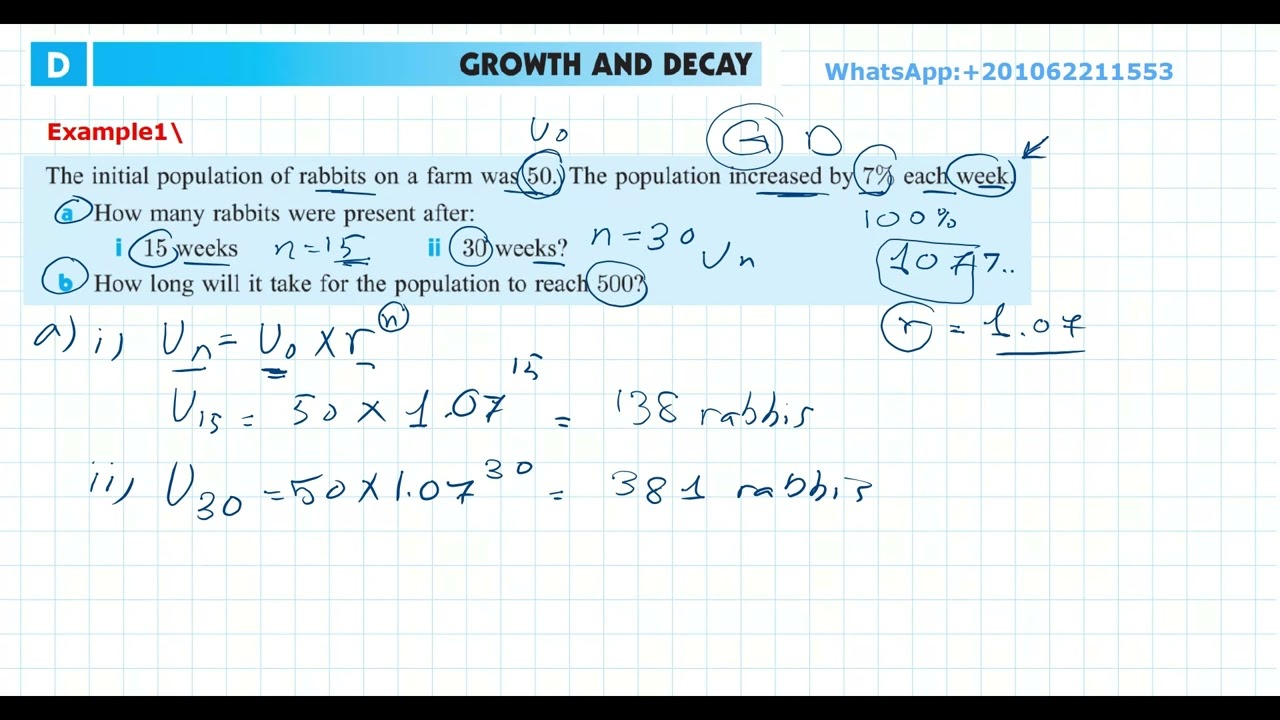 D GROWTH AND DECAY
WhatsApp:+201062211553
Example1\
U₀
G D
The initial population of rabbits on a farm was 50. The population increased by 7% each week.
a How many rabbits were present after:
100%
i 15 weeks n=15 ii 30 weeks? n=30 Un
107%
b How long will it take for the population to reach 500?
a) i) Un = U₀ × rⁿ
r = 1.07
U₁₅ = 50 × 1.07¹⁵ = 138 rabbis
ii) U₃₀ = 50 × 1.07³⁰ = 381 rabbis